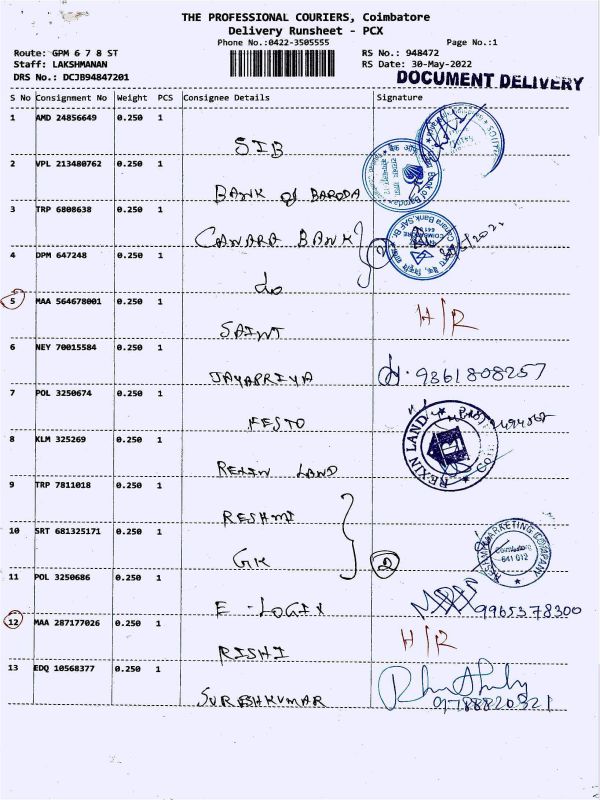 THE PROFESSIONAL COURIERS, Coimbatore
Delivery Runsheet - PCX
Phone No.:0422-3505555
Page No.:1
Route: GPM 6 7 8 ST
RS No.: 948472
Staff: LAKSHMANAN
RS Date: 30-May-2022
DRS No.: DCJB94847201
DOCUMENT DELIVERY
S No Consignment No Weight PCS Consignee Details Signature
1 AMD 24856649 0.250 1
SIB
2 VPL 213480762 0.250 1
BANK of BARODA
Bank of Baroda
3 TRP 6808638 0.250 1
CANARA BANK
2
4 DPM 647248 0.250 1
do
5 MAA 564678001 0.250 1
H/R
SAINT
6 NEY 70015584 0.250 1
JAYAPRIYA
9361808257
7 POL 3250674 0.250 1
FESTO
8 KLM 325269 0.250 1
REXIN LAND
REXIN LAND
9 TRP 7811018 0.250 1
RESHMI
10 SRT 681325171 0.250 1
GK
2
MARKETING COMPANY
Coimbatore
641 012
11 POL 3250686 0.250 1
E-LOGIX
9965378300
12 MAA 287177026 0.250 1
H/R
RISHI
13 EDQ 10568377 0.250 1
SURESHKUMAR